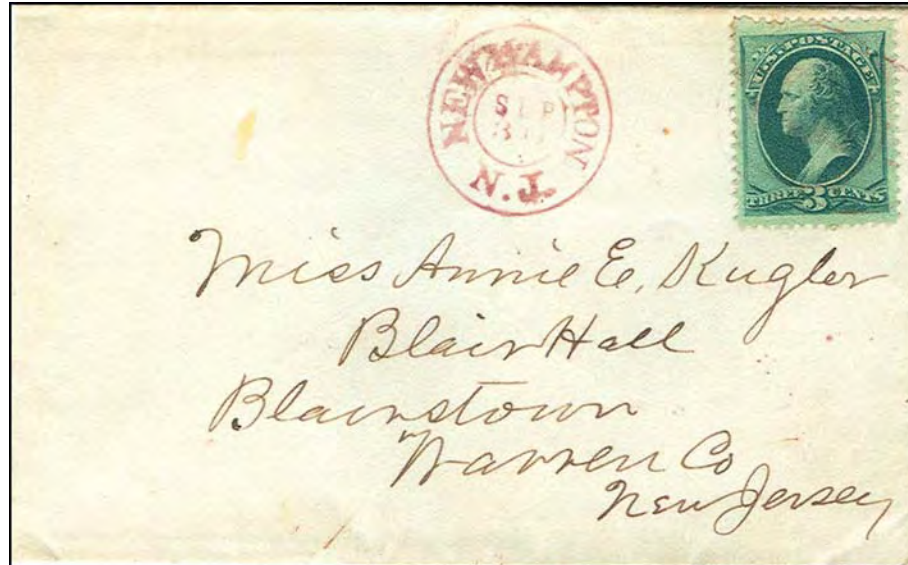 NEW HAMPTON
SEP
N.J.
U.S. POSTAGE
THREE 3 CENTS
Miss Annie E. Kugler
Blair Hall
Blairstown
Warren Co
New Jersey